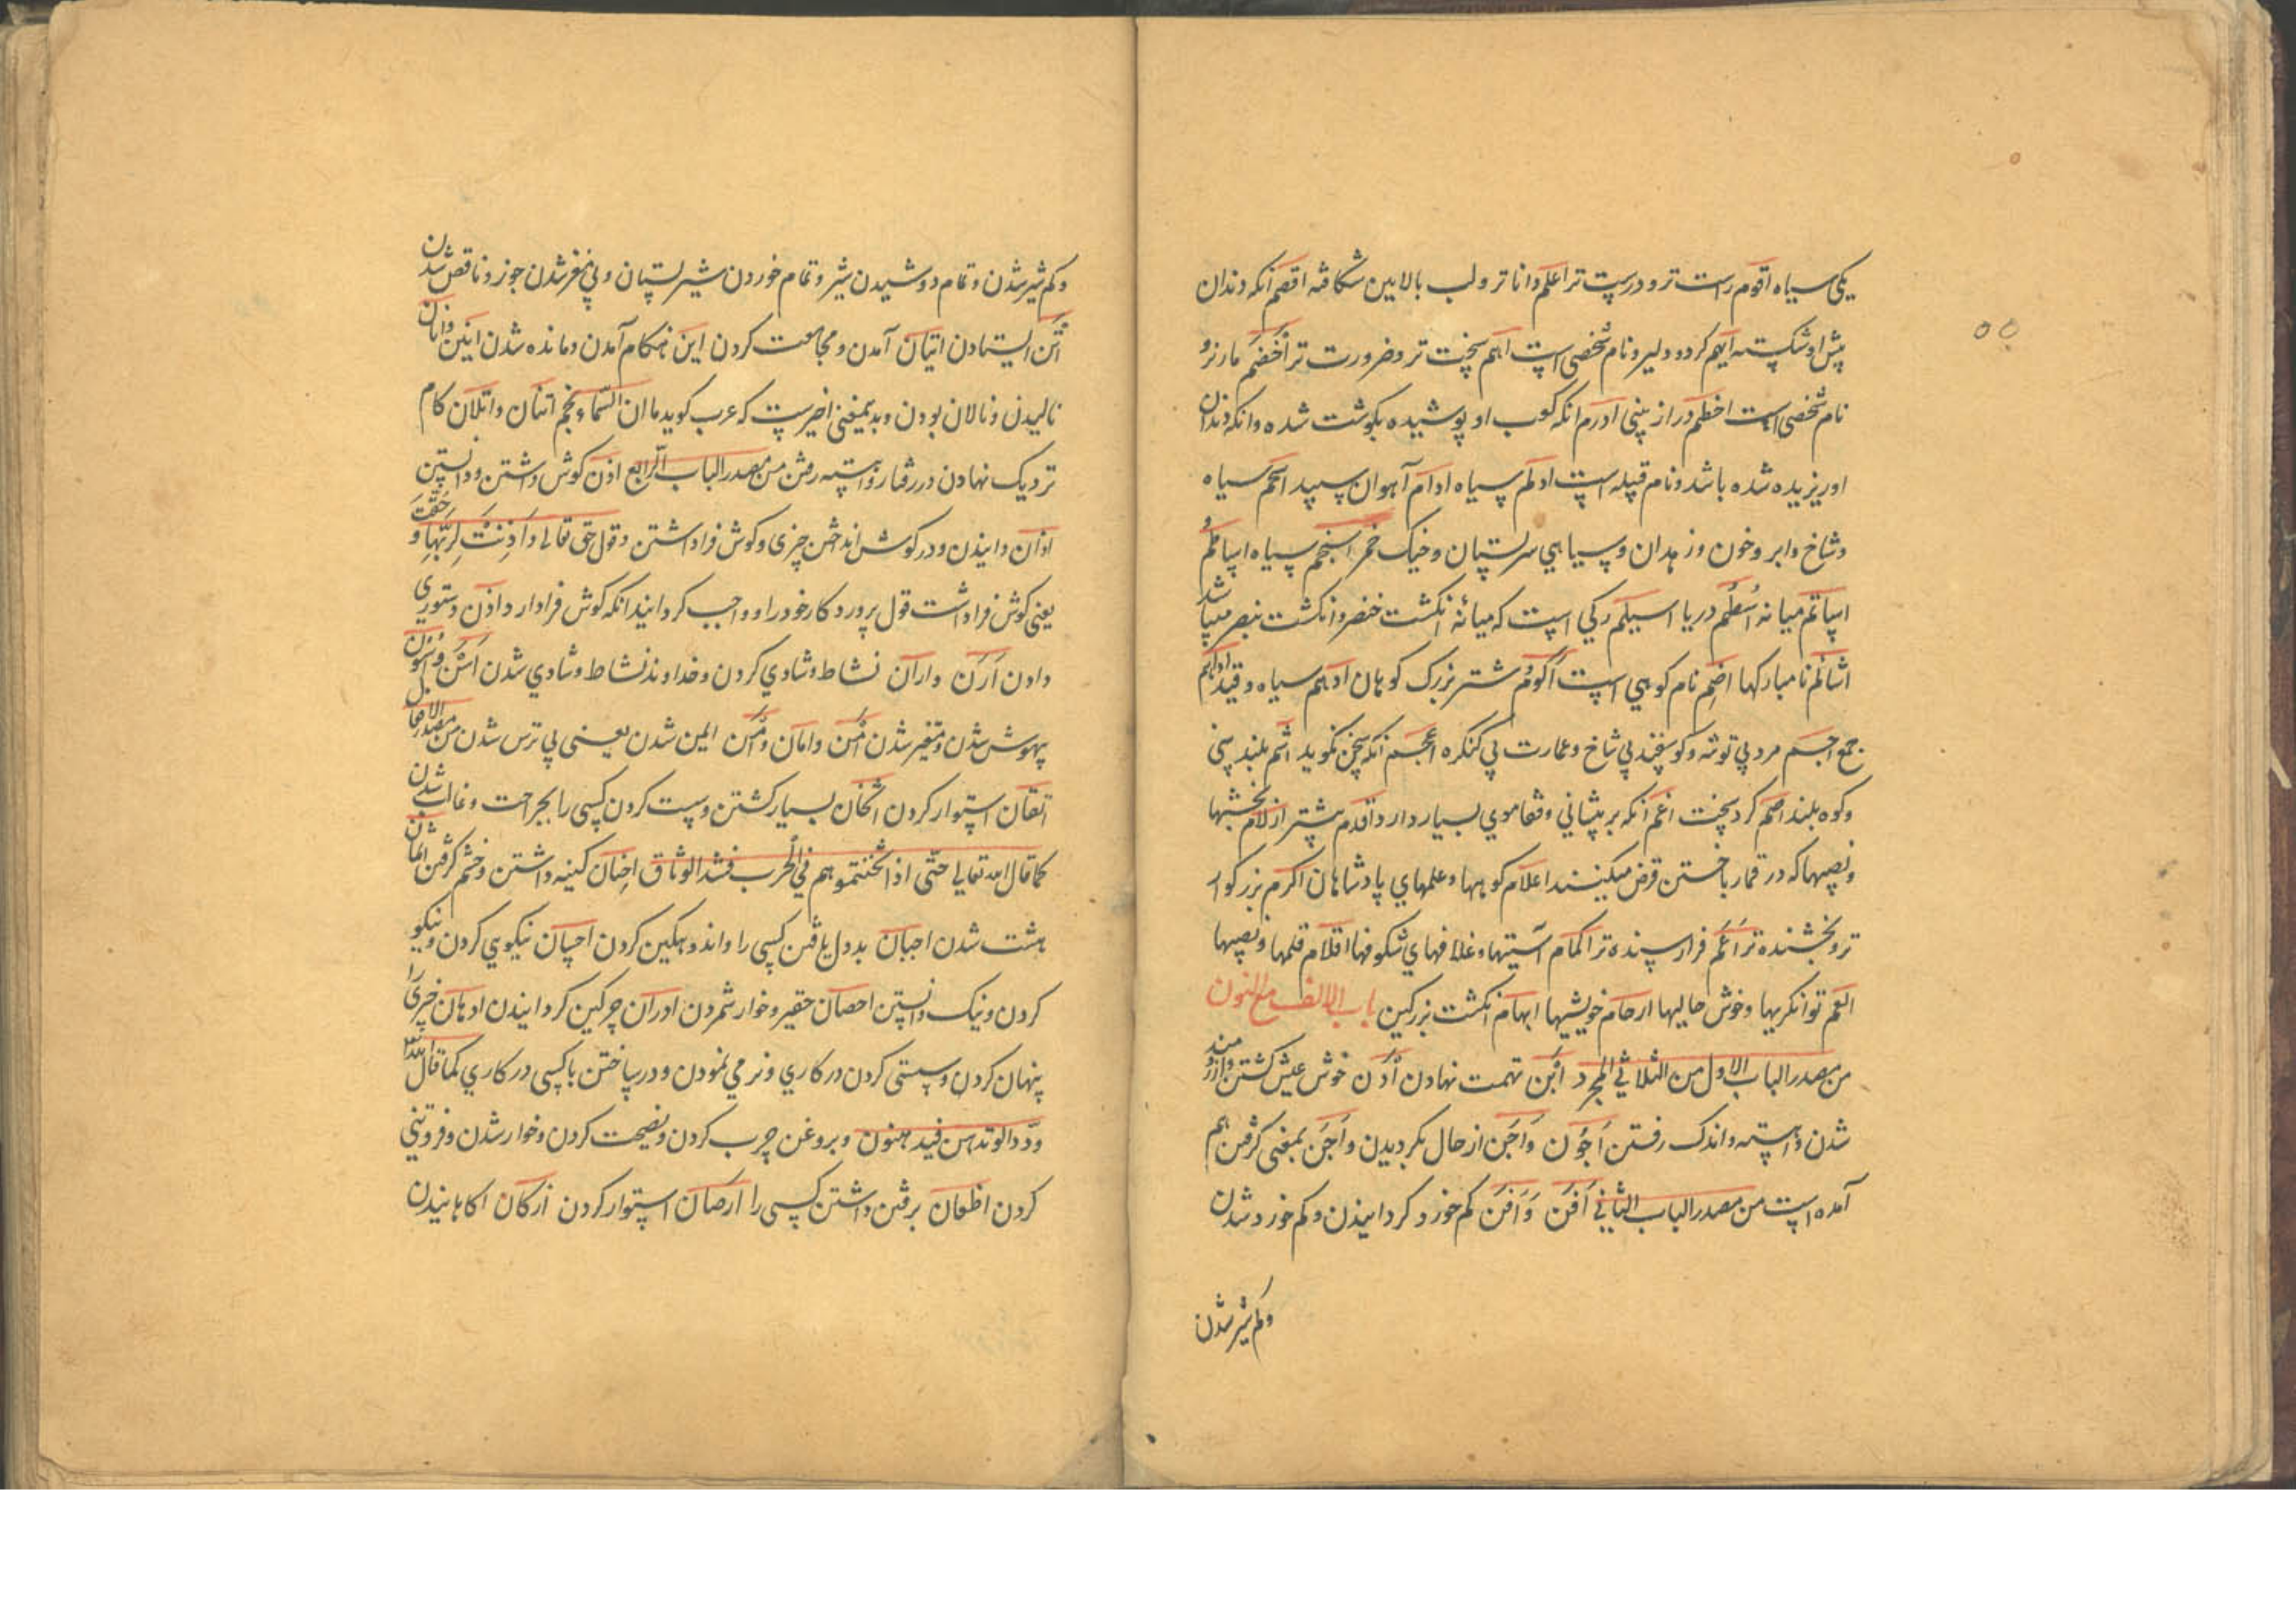 یکی سیاه اقوم راست تر و درست تر اعلم داناتر و لب بالایین شکافته اقصم آنکه دندان
پیش او شکسته ایهم کرد و دلیر و نام شخصی است اهم سخت تر و ضرورت تر اخضم مار نر و
نام شخصی است اخطم دراز بینی ادرم انکه کعب او پوشیده بکوشت شده و انکه دندان
او ریزیده شده باشد و نام قبیله است ادلم سیاه ادام آهوان سپید اسحم سیاه
و شاخ و ابر و خون و زهدان و سیاهی سر پستان و خیک خمر اسخم سیاه اساطم و
اساتم میانه اسطم دریا اسیلم رکی است که میانهٔ انکشت خنصر و انکشت بنصر میباشد
اشائم نامبارکها اضم نام کوهی است اکوم شتر بزرک کوهان ادهم سیاه و قید اداهم
جمع اجم مرد بی توشه و کوسفند بی شاخ و عمارت بی کنکره اعجم آنکه سخن نکوید اشم بلند بینی
و کوه بلند اصم کر و سخت اغم آنکه بر پیشانی و قفا موی بسیار دارد اقدم پیشتر ازلام بخشها
و نصیبها که در قمار باختن قرض میکنند اعلام کوهها و علمهای پادشاهان اکرم بزرکوار
تر و بخشنده تر اعم فرا رسنده تر اکمام آستینها و غلافهای شکوفها اقلام قلمها و نصیبها
انعم توانکریها و خوش حالیها ارحام خویشیها ابهام انکشت بزرکین باب الالف مع النون
من مصدر الباب الاول من الثلاثی المجرد ابن تهمت نهادن اون خوش عیش کشتن و آرزومند
شدن و آهسته و اندک رفتن اجون و اجن از حال بکردیدن و اجن بمعنی کرفتن هم
آمده است من مصدر الباب الثانی افن و افن کم خورد کردانیدن و کم خورد شدن
و کم شیر شدن
و کم شیر شدن و تمام دوشیدن شیر و تمام خوردن شیر پستان و بی مغز شدن جوز و ناقص شدن
اتن ایستادن اتیان آمدن و مجامعت کردن این هنکام آمدن و مانده شدن انین و انان
نالیدن و نالان بودن و بدیمعنی اخیرست که عرب کوید ما ان السماء نجم اتنان و اتلان کام
نزدیک نهادن در رفتار و آهسته رفتن من مصدر الباب الرابع اذن کوش داشتن و دانستن
اذان دانیدن و در کوش انداختن چیزی و کوش فرا داشتن و قول حق تعالی و اذنت لربها و حقت
یعنی کوش فرا داشت قول پروردکار خود را و واجب کردانید آنکه کوش فرا دارد و اذن دستوری
دادن ارن و اران نشاط و شادی کردن و خداوند نشاط و شادی شدن اسن و اسون
بیهوش شدن و متغیر شدن امن و امان و امن ایمن شدن یعنی بی ترس شدن من مصدر الافعال
اتقان استوار کردن اثخان بسیار کشتن و سست کردن کسی را بجراحت و غالب شدن
کما قال الله تعالی حتی اذا اثخنتموهم فی الحرب فشدوا الوثاق احنان کینه داشتن و خشم کرفتن اثمان
هشت شدن اجبان بددل یافتن کسی را و اندوهکین کردن احسان نیکویی کردن و نیکو
کردن و نیک دانستن احصان حقیر و خوار شمردن ادران چرکین کردانیدن ادهان چیزی را
پنهان کردن و سستی کردن در کاری و نرمی نمودن و در ساختن با کسی در کاری کما قال الله تعالی
ودوا لو تدهن فیدهنون و بروغن چرب کردن و نصیحت کردن و خوار شدن و فروتنی
کردن اظعان برفتن داشتن کسی را ارصان استوار کردن ازکان آکاهانیدن